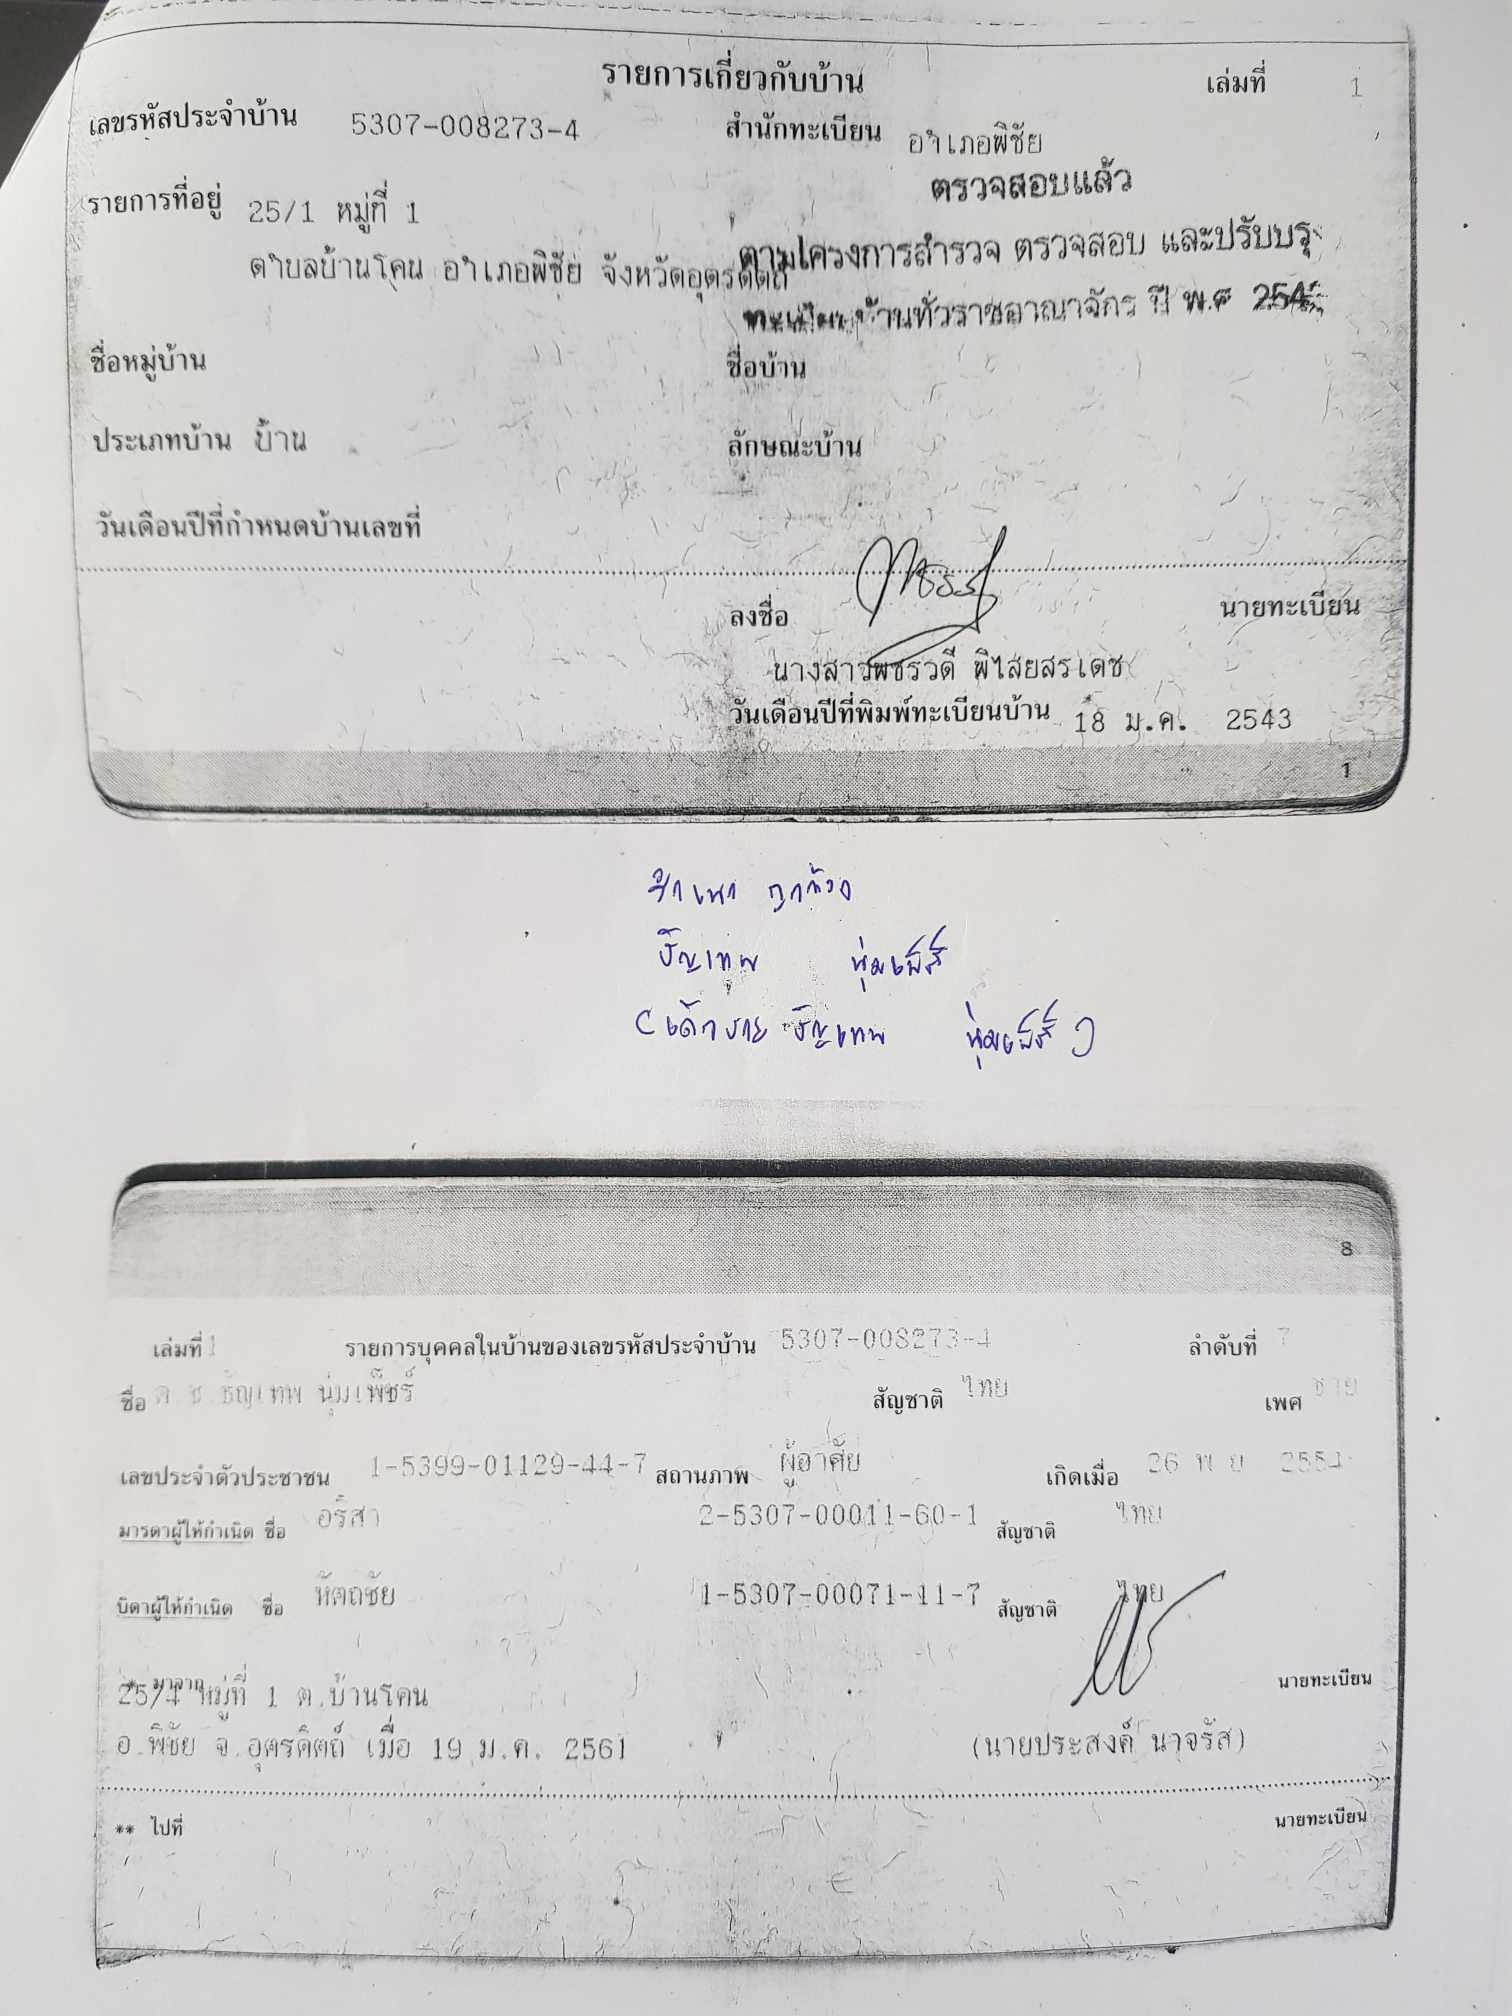 รายการเกี่ยวกับบ้าน เล่มที่ 1
เลขรหัสประจำบ้าน 5307-008273-4 สำนักทะเบียน อำเภอพิชัย
ตรวจสอบแล้ว
รายการที่อยู่ 25/1 หมู่ที่ 1
ตามโครงการสำรวจ ตรวจสอบ และปรับปรุ
ตำบลบ้านโคน อำเภอพิชัย จังหวัดอุตรดิตถ์
ทะเบียนบ้านทั่วราชอาณาจักร ปี พ.ศ
ชื่อหมู่บ้าน ชื่อบ้าน
ประเภทบ้าน บ้าน ลักษณะบ้าน
วันเดือนปีที่กำหนดบ้านเลขที่
ลงชื่อ นายทะเบียน
นางสาวพชรวดี พิไสยสรเดช
วันเดือนปีที่พิมพ์ทะเบียนบ้าน 18 ม.ค. 2543
1
สำเนา ถูกต้อง
ธัญเทพ นุ่มเพ็ชร์
(เด็กชาย ธัญเทพ นุ่มเพ็ชร์)
8
เล่มที่ 1 รายการบุคคลในบ้านของเลขรหัสประจำบ้าน 5307-008273-4 ลำดับที่ 7
ชื่อ ด ช ธัญเทพ นุ่มเพ็ชร์ สัญชาติ ไทย เพศ ชาย
เลขประจำตัวประชาชน 1-5399-01129-44-7 สถานภาพ ผู้อาศัย เกิดเมื่อ 26 พ ย 2554
มารดาผู้ให้กำเนิด ชื่อ อริสา 2-5307-00011-60-1 สัญชาติ ไทย
บิดาผู้ให้กำเนิด ชื่อ หัตถชัย 1-5307-00071-11-7 สัญชาติ ไทย
** มาจาก นายทะเบียน
25/4 หมู่ที่ 1 ต.บ้านโคน
อ.พิชัย จ.อุตรดิตถ์ เมื่อ 19 ม.ค. 2561 (นายประสงค์ นาจรัส)
** ไปที่ นายทะเบียน